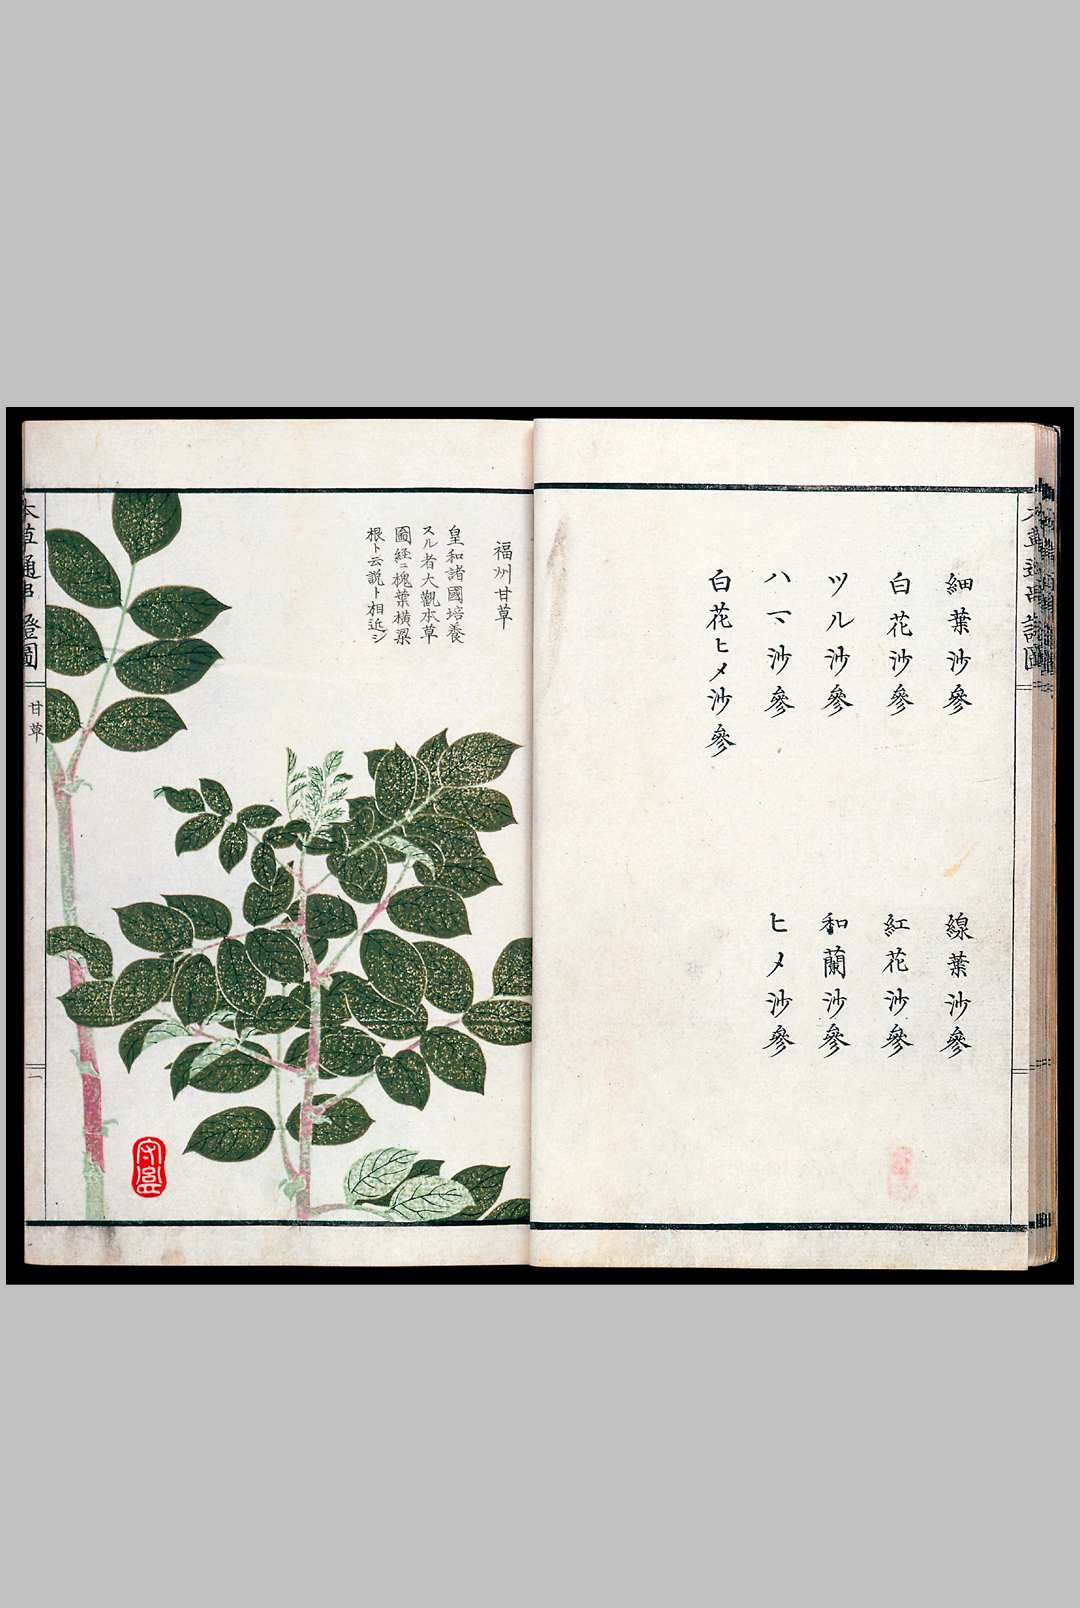 細葉沙參
白花沙參
ツル沙參
ハマ沙參
白花ヒメ沙參
線葉沙參
紅花沙參
和蘭沙參
ヒメ沙參
福州甘草
皇和諸國培養
スル者大觀本草
圖経ニ槐葉橫梁
根ト云説ト相近シ
本草通串證圖
甘草
一